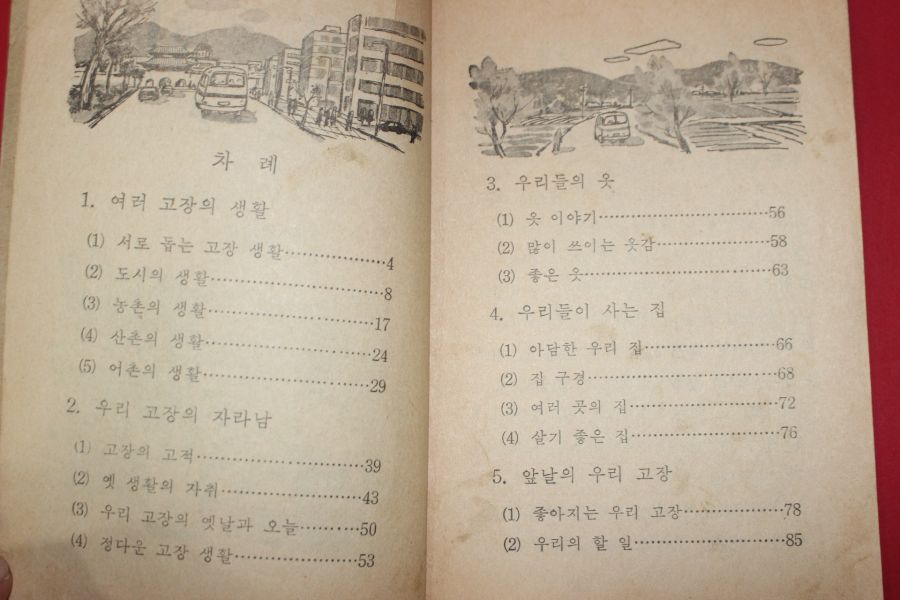 차 례
1. 여러 고장의 생활
(1) 서로 돕는 고장 생활……………4
(2) 도시의 생활……………………8
(3) 농촌의 생활……………………17
(4) 산촌의 생활……………………24
(5) 어촌의 생활……………………29
2. 우리 고장의 자라남
(1) 고장의 고적……………………39
(2) 옛 생활의 자취…………………43
(3) 우리 고장의 옛날과 오늘………50
(4) 정다운 고장 생활………………53
3. 우리들의 옷
(1) 옷 이야기………………………56
(2) 많이 쓰이는 옷감………………58
(3) 좋은 옷…………………………63
4. 우리들이 사는 집
(1) 아담한 우리 집…………………66
(2) 집 구경…………………………68
(3) 여러 곳의 집……………………72
(4) 살기 좋은 집……………………76
5. 앞날의 우리 고장
(1) 좋아지는 우리 고장……………78
(2) 우리의 할 일……………………85